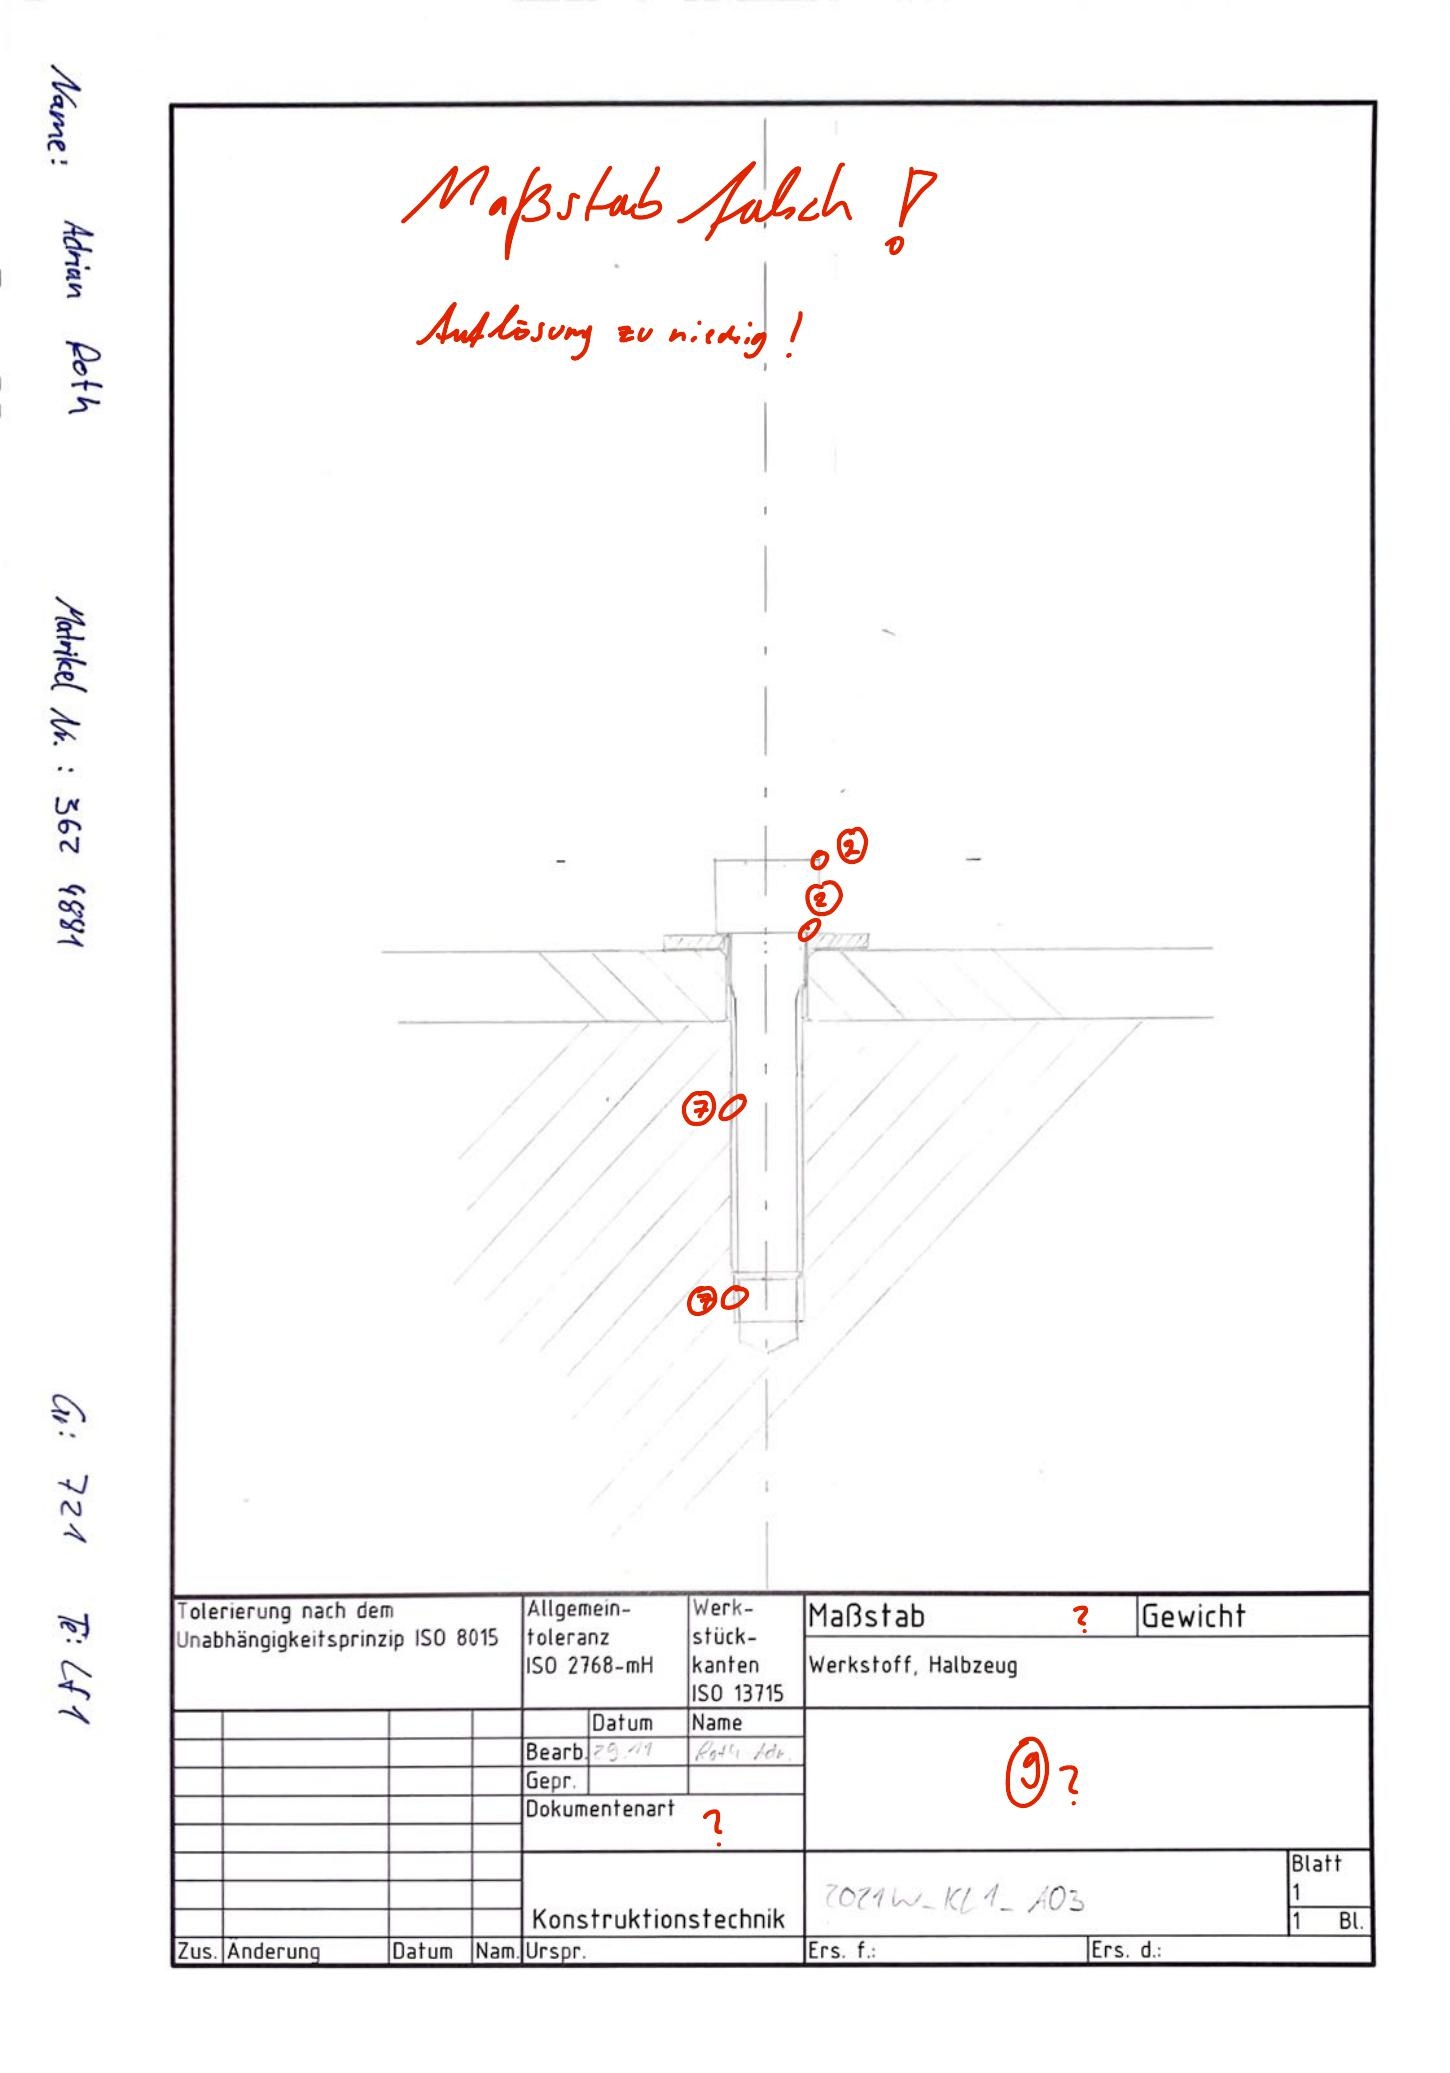 Name: Adrian Roth Matrikel Nr.: 362 4881 Gr: 721 Te: Lf1
Maßstab falsch!
Auflösung zu niedrig!
2
2
7
7
Tolerierung nach dem
Unabhängigkeitsprinzip ISO 8015
Allgemein-
toleranz
ISO 2768-mH
Werk-
stück-
kanten
ISO 13715
Maßstab ?
Gewicht
Werkstoff, Halbzeug
Datum Name
Bearb. 29.11 Roth Adr.
Gepr.
Dokumentenart ?
9?
Konstruktionstechnik
2021W_KL1_A03
Blatt
1
1 Bl.
Zus. Änderung Datum Nam. Urspr. Ers. f.: Ers. d.: